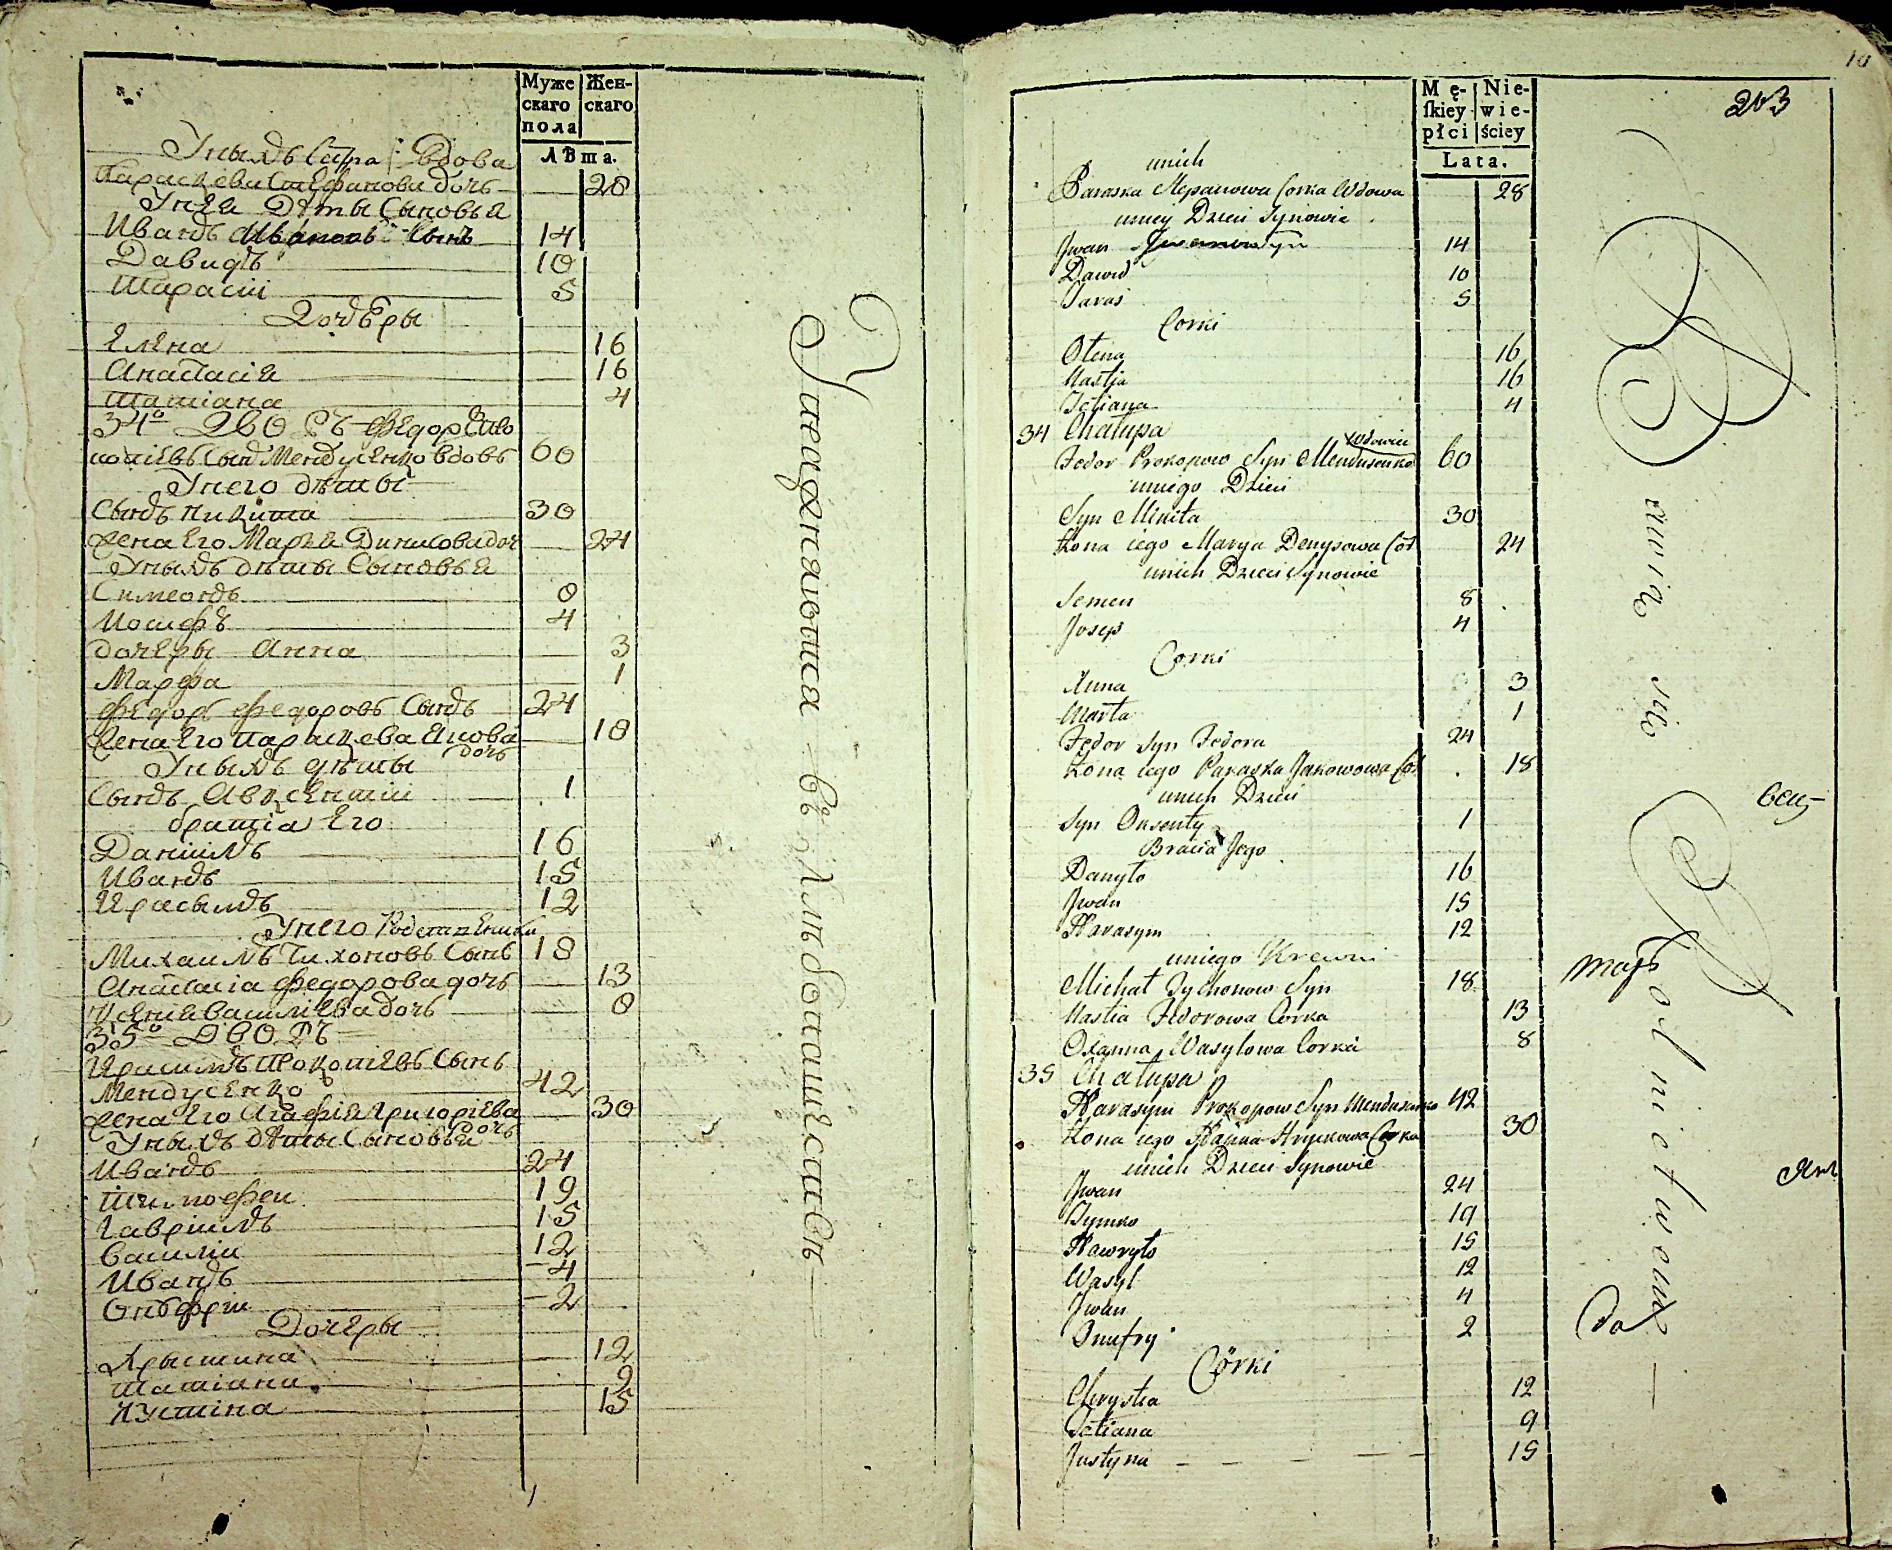 Муже
скаго
пола
Жен-
скаго
ЛѢта.
Унихъ Сестра Вдова
Параскева Степанова дочь 28
Унея Дѣти Сыновья
Иванъ Ивановъ Сынъ 14
Давидъ 10
Тарасій 5
Дочеры
Елена 16
Анастасія 16
Татіана 4
34о Дворъ Федоръ Про
копіевъ Сынъ Мендусенко вдовъ 60
Унего дѣти
Сынъ Никита 30
жена Его Марья Динисова доч 24
Унихъ дѣти Сыновья
Симеонъ 8
Иосифъ 4
дочеры Анна 3
Марфа 1
Федоръ Федоровъ Сынъ 24
жена Его Параскева Якова
дочь 18
Унихъ дѣти
Сынъ Авксентій 1
братіа Его
Даніилъ 16
Иванъ 15
Ирасымъ 12
Унего Родственики
Михаилъ Тихоновъ Сынъ 18
Анастасіа Федорова дочь 13
Ксенія Василіева дочь 8
35о Дворъ
Ирасимъ Прокопіевъ Сынъ
Мендусенко 42
жена Его Агафія Григоріева
дочь 30
Унихъ дѣти Сыновья
Иванъ 24
Тимофеи 19
Гавріилъ 15
Василіи 12
Иванъ 4
Онуфріи 2
Дочеры
Христина 12
Татіана 9
Устина 15
10
243
Mę-
ſkiey
płci
Nie-
wie-
ściey
Lata.
unich
Paraska Stepanowa Corka Wdowa 28
uniey Dzieci Synowie
Jwan Jwanow Syn 14
Dawid 10
Taras 5
Corki
Olena 16
Nastia 16
Tetiana 4
34 Chałupa
Wdowiec
Fedor Prokopow Syn Mendusenko 60
uniego Dzieci
Syn Mikita 30
Zona iego Marya Denysowa Cor 24
unich Dzieci Synowie
Semen 8
Josep 4
Corki
Anna 3
Marta 1
Fedor Syn Fedora 24
Zona iego Paraska Jakowowa Cor 18
unich Dzieci
Syn Oxenty 1
Bracia Jego
Danyło 16
Jwan 15
Harasym 12
uniego Krewni
Michał Tychonow Syn 18
Nastia Fedorowa Corka 13
Oxanna Wasylowa Corka 8
35 Chałupa
Harasym Prokopow Syn Mendusenko 42
Zona iego Hanna Hrynkowa Corka 30
unich Dzieci Synowie
Jwan 24
Tymko 19
Hawryło 15
Wasyl 12
Jwan 4
Onufry 2
Córki
Chrystia 12
Tatiana 9
Justyna 15